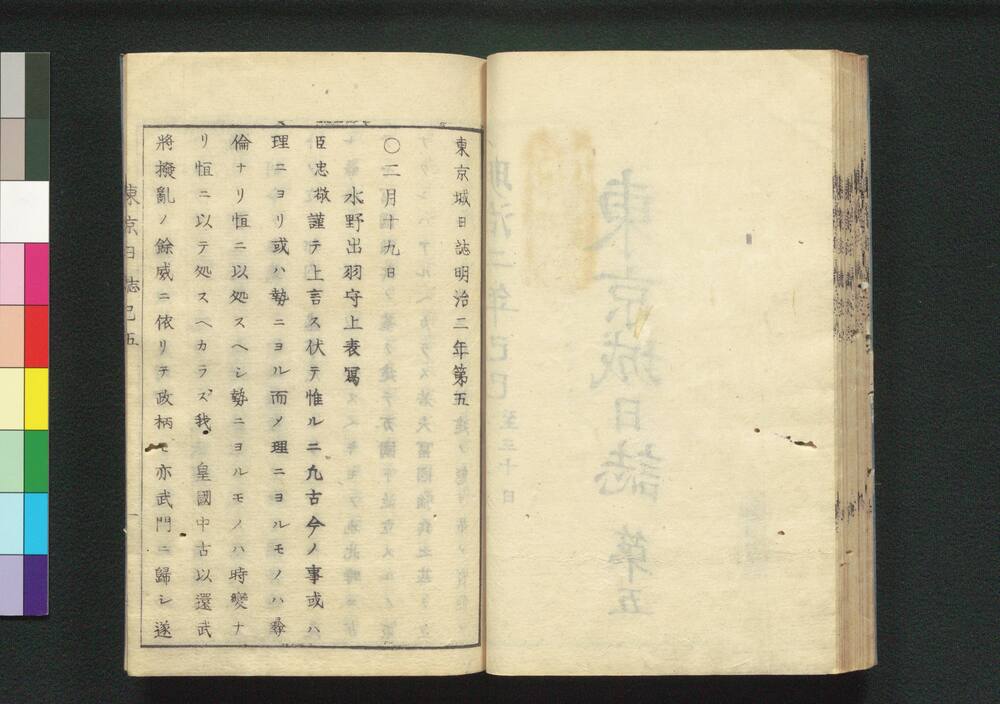 東京城日誌明治二年第五
〇二月十九日
水野出羽守上表寫
臣忠敬謹テ上言ス伏テ惟ルニ凢古今ノ事或ハ
理ニヨリ或ハ勢ニヨル而メ理ニヨルモノハ彜
倫ナリ恒ニ以処スヘシ勢ニヨルモノハ時變ナ
リ恒ニ以テ処スヘカラズ我 皇國中古以還武
將撥亂ノ餘威ニ依リテ政柄モ亦武門ニ歸シ遂
東京日誌己五
東京城日誌 第五
明治二年己巳 至三十日